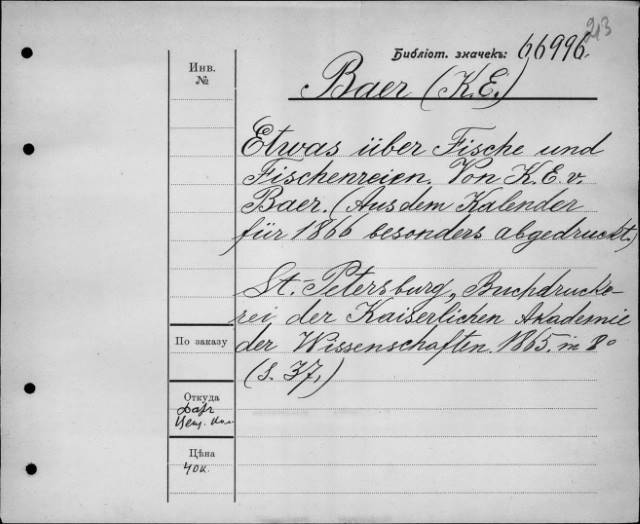 213
Библіот. значекъ: 66996.
Инв.
№
Baer (K.E.)
Etwas über Fische und
Fischenreien. Von K.E.v.
Baer. (Aus dem Kalender
für 1866 besonders abgedruckt.)
St.-Petersburg, Buchdrucke-
rei der Kaiserlichen Akademie
der Wissenschaften. 1865. in 8º
(S. 37.)
По заказу
Откуда
Даръ
Ценз. Ком.
Цѣна
40 к.